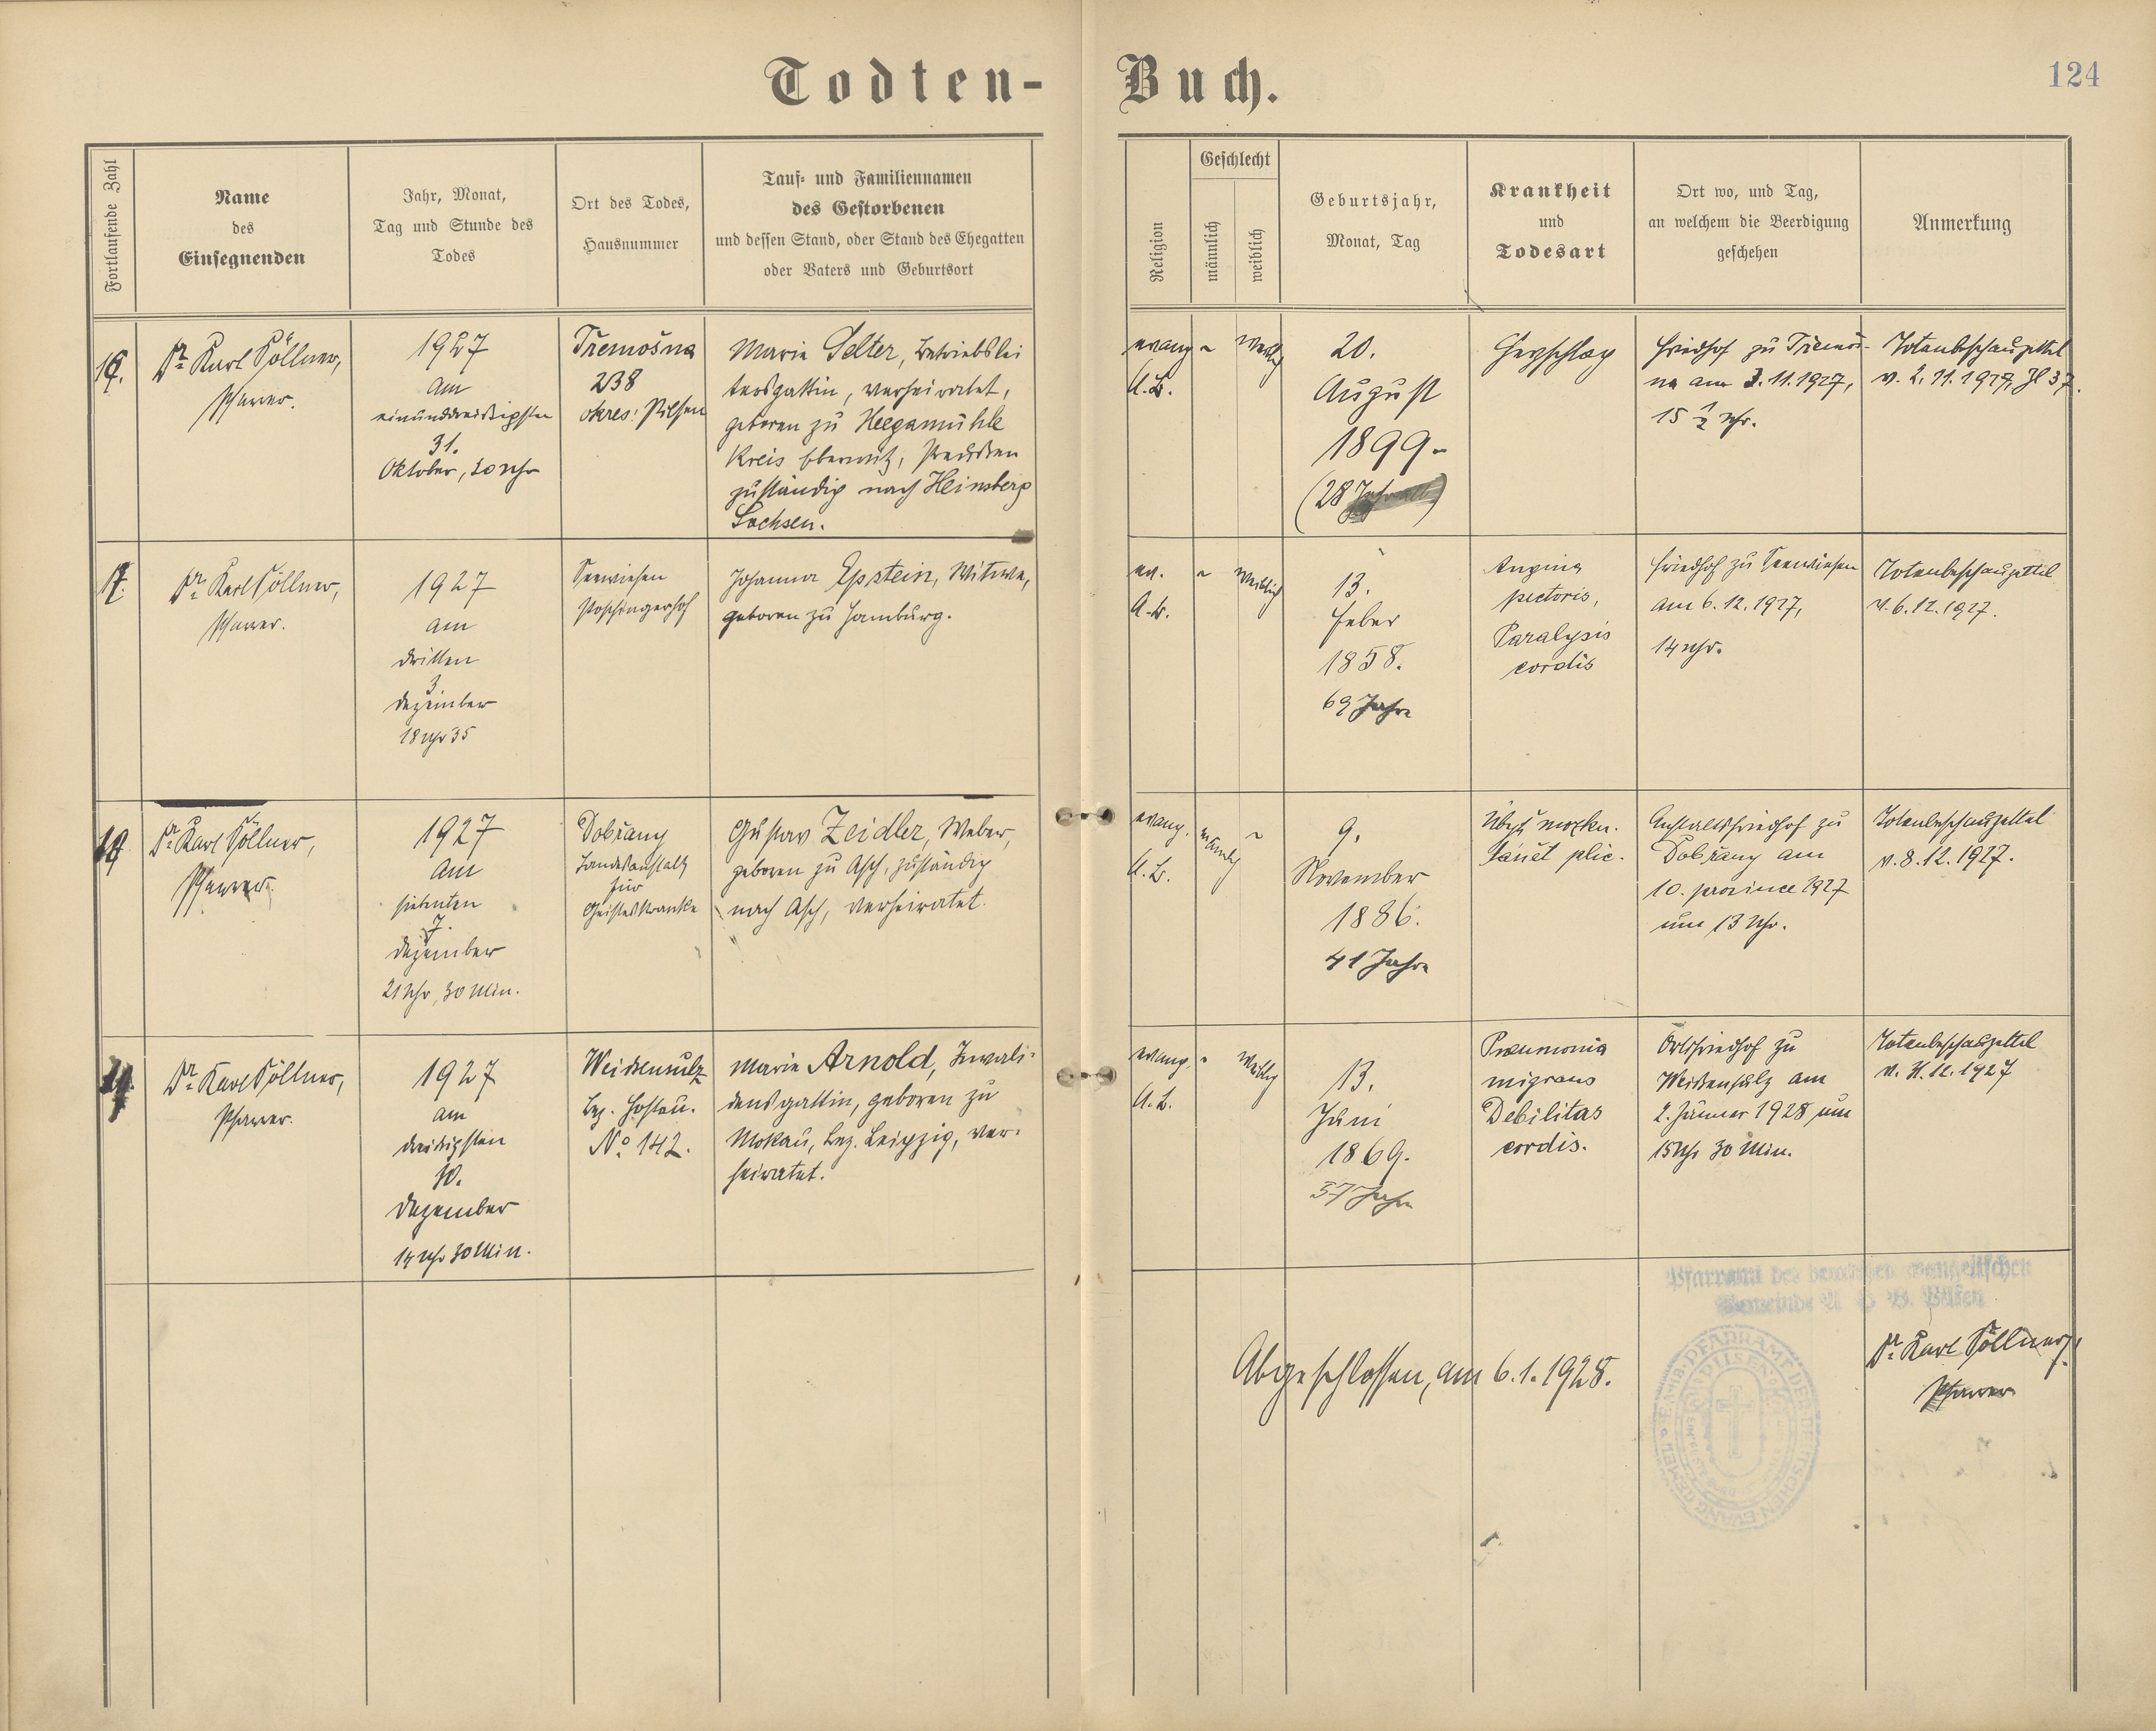 Todten-Buch.
124
Fortlaufende Zahl
Name
des
Einsegnenden
Jahr, Monat,
Tag und Stunde des
Todes
Ort des Todes,
Hausnummer
Tauf- und Familiennamen
des Gestorbenen
und dessen Stand, oder Stand des Ehegatten
oder Vaters und Geburtsort
Religion
Geschlecht
männlich
weiblich
Geburtsjahr,
Monat, Tag
Krankheit
und
Todesart
Ort wo, und Tag,
an welchem die Beerdigung
geschehen
Anmerkung
16.
Dr. Karl Töllner,
Pfarrer.
1927
am
einunddreißigsten
31.
Oktober, 20 Uhr
Třemošna
238
okres: Pilsen
Marie Selter, Betriebslei
tersgattin, verheiratet,
geboren zu Heegamühle
Kreis Preussen
zuständig nach Heinsberg
Sachsen.
evang
A.B.
"
weiblich
20.
August
1899.
(28 Jahre alt)
Herzschlag
Friedhof zu Třemoš-
na am 3.11.1927,
15 1/2 Uhr.
Totenbeschauzettel
v. 2.11.1927, Zl 37.
17.
Dr. Karl Töllner,
Pfarrer.
1927
am
dritten
3
Dezember
18 Uhr 35
Seewiesen
Poschingerhof
Johanna Epstein, Witwe,
geboren zu Hamburg.
ev.
A.B.
"
weiblich
13.
Feber
1858.
69 Jahre
Angina
pectoris,
Paralysis
cordis
Friedhof zu Seewiesen
am 6.12.1927,
14 Uhr.
Totenbeschauzettel
v. 6.12.1927.
18
Dr. Karl Töllner,
Pfarrer.
1927
am
siebenten
7.
Dezember
21 Uhr, 30 Min.
Dobřany
Landesanstalt
für
Geisteskranke
Gustav Zeidler, Weber,
geboren zu Asch, zuständig
nach Asch, verheiratet.
evang.
A.B.
männlich
"
9.
November
1886.
41 Jahre
zánět plic.
Anstaltsfriedhof zu
Dobřany am
10. prosince 1927
um 13 Uhr.
Totenbeschauzettel
v. 8.12.1927.
19.
Dr. Karl Töllner,
Pfarrer.
1927
am
dreißigsten
30.
Dezember
14 Uhr 30 Min.
Weissensulz
Bez. Hostau.
No. 142.
Marie Arnold, Invali-
densgattin, geboren zu
Mokau, Bez. Leipzig, ver-
heiratet.
evang.
A.B.
"
weiblich
13.
Juni
1869.
57 Jahre
Pneumonia
migrans
Debilitas
cordis.
Ortsfriedhof zu
Weißensulz am
2. Jänner 1928 um
15 Uhr 30 Min.
Totenbeschauzettel
v. 31.12.1927
Pfarramt der deutschen evangelischen
Gemeinde A. B. Pilsen
Abgeschlossen, am 6.1.1928.
Dr. Karl Töllner,
Pfarrer